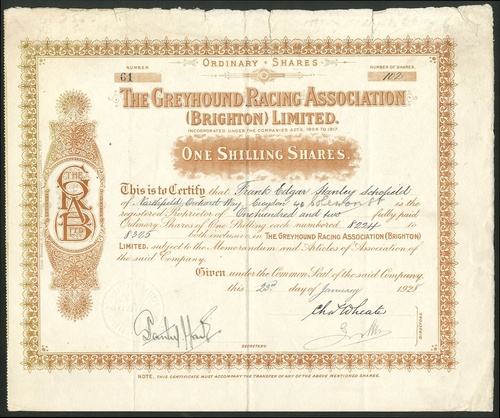 ORDINARY SHARES
NUMBER NUMBER OF SHARES
61 102
THE GREYHOUND RACING ASSOCIATION
(BRIGHTON) LIMITED.
INCORPORATED UNDER THE COMPANIES ACTS, 1908 TO 1917.
ONE SHILLING SHARES.
THE
GRAB
LTD
This is to Certify that Frank Edgar Stanley Schofield
of Northfield, Orchard Way, Croydon
registered Proprietor of One hundred and two fully paid
Ordinary Shares of One Shilling each numbered 8224 to
8325 both inclusive in THE GREYHOUND RACING ASSOCIATION (BRIGHTON)
LIMITED. subject to the Memorandum and Articles of Association of
the said Company.
Given under the Common Seal of the said Company,
this 23rd day of January 1928
Chas Wheate
DIRECTORS.
SECRETARY.
NOTE. THIS CERTIFICATE MUST ACCOMPANY THE TRANSFER OF ANY OF THE ABOVE MENTIONED SHARES.